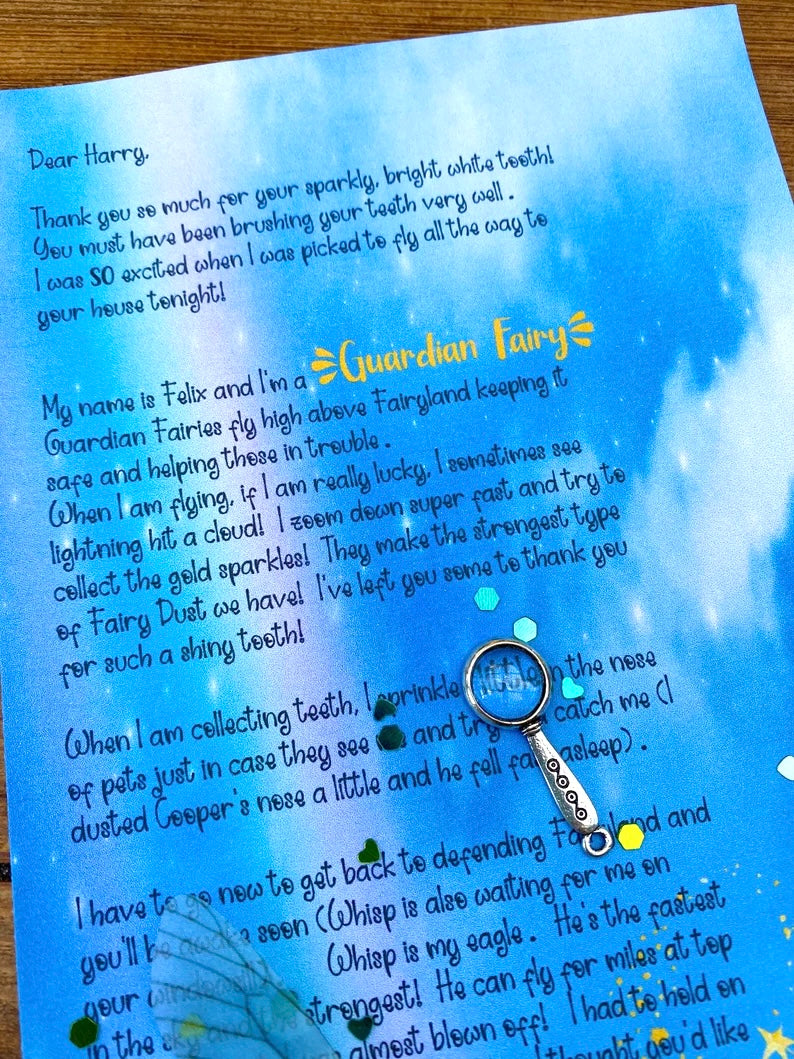 Dear Harry,
Thank you so much for your sparkly, bright white tooth!
You must have been brushing your teeth very well.
I was SO excited when I was picked to fly all the way to
your house tonight!
My name is Felix and I'm a Guardian Fairy
Guardian Fairies fly high above Fairyland keeping it
safe and helping those in trouble.
When I am flying, if I am really lucky, I sometimes see
lightning hit a cloud! I zoom down super fast and try to
collect the gold sparkles! They make the strongest type
of Fairy Dust we have! I've left you some to thank you
for such a shiny tooth!
When I am collecting teeth, I sprinkle a little on the nose
of pets just in case they see and try catch me (I
dusted Cooper's nose a little and he fell fast asleep).
I have to go now to get back to defending Fairyland and
you'll be awake soon (Whisp is also waiting for me on
your windowsill). Whisp is my eagle. He's the fastest
in the sky and the strongest! He can fly for miles at top
almost blown off! I had to hold on
thought you'd like